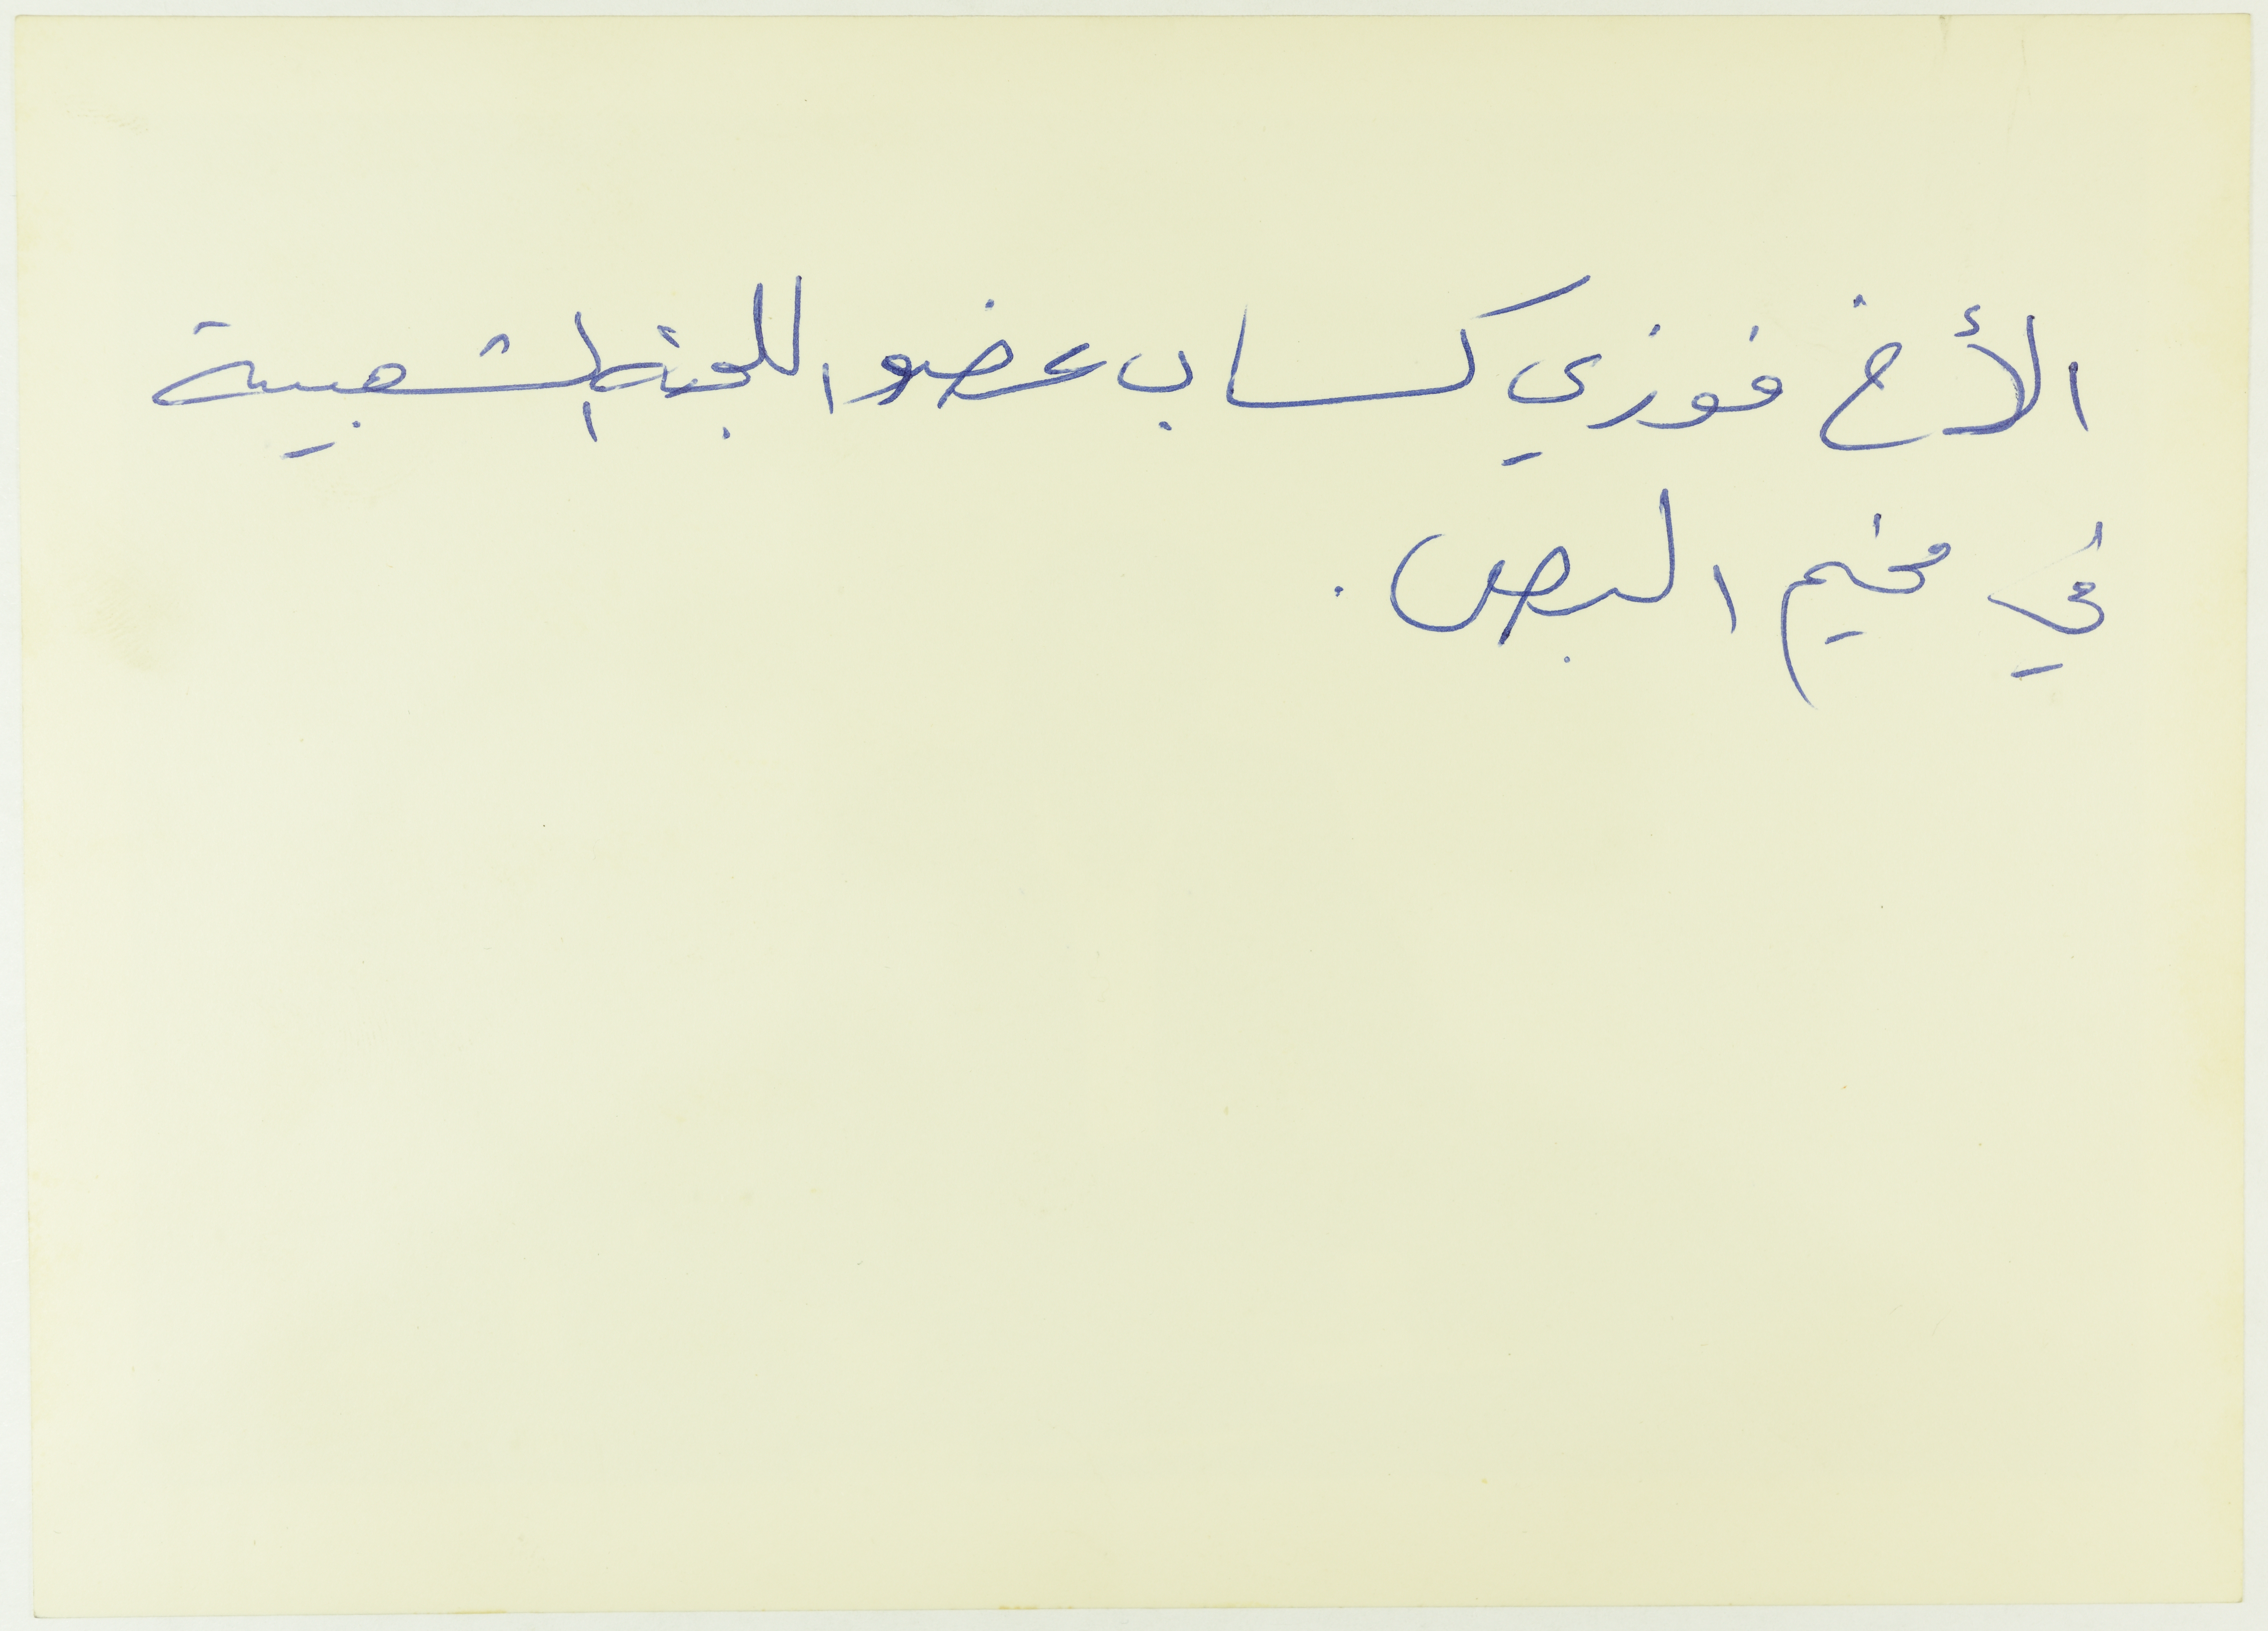 الأخ فوزي كساب عضو اللجنة الشعبية
في مخيم البص .